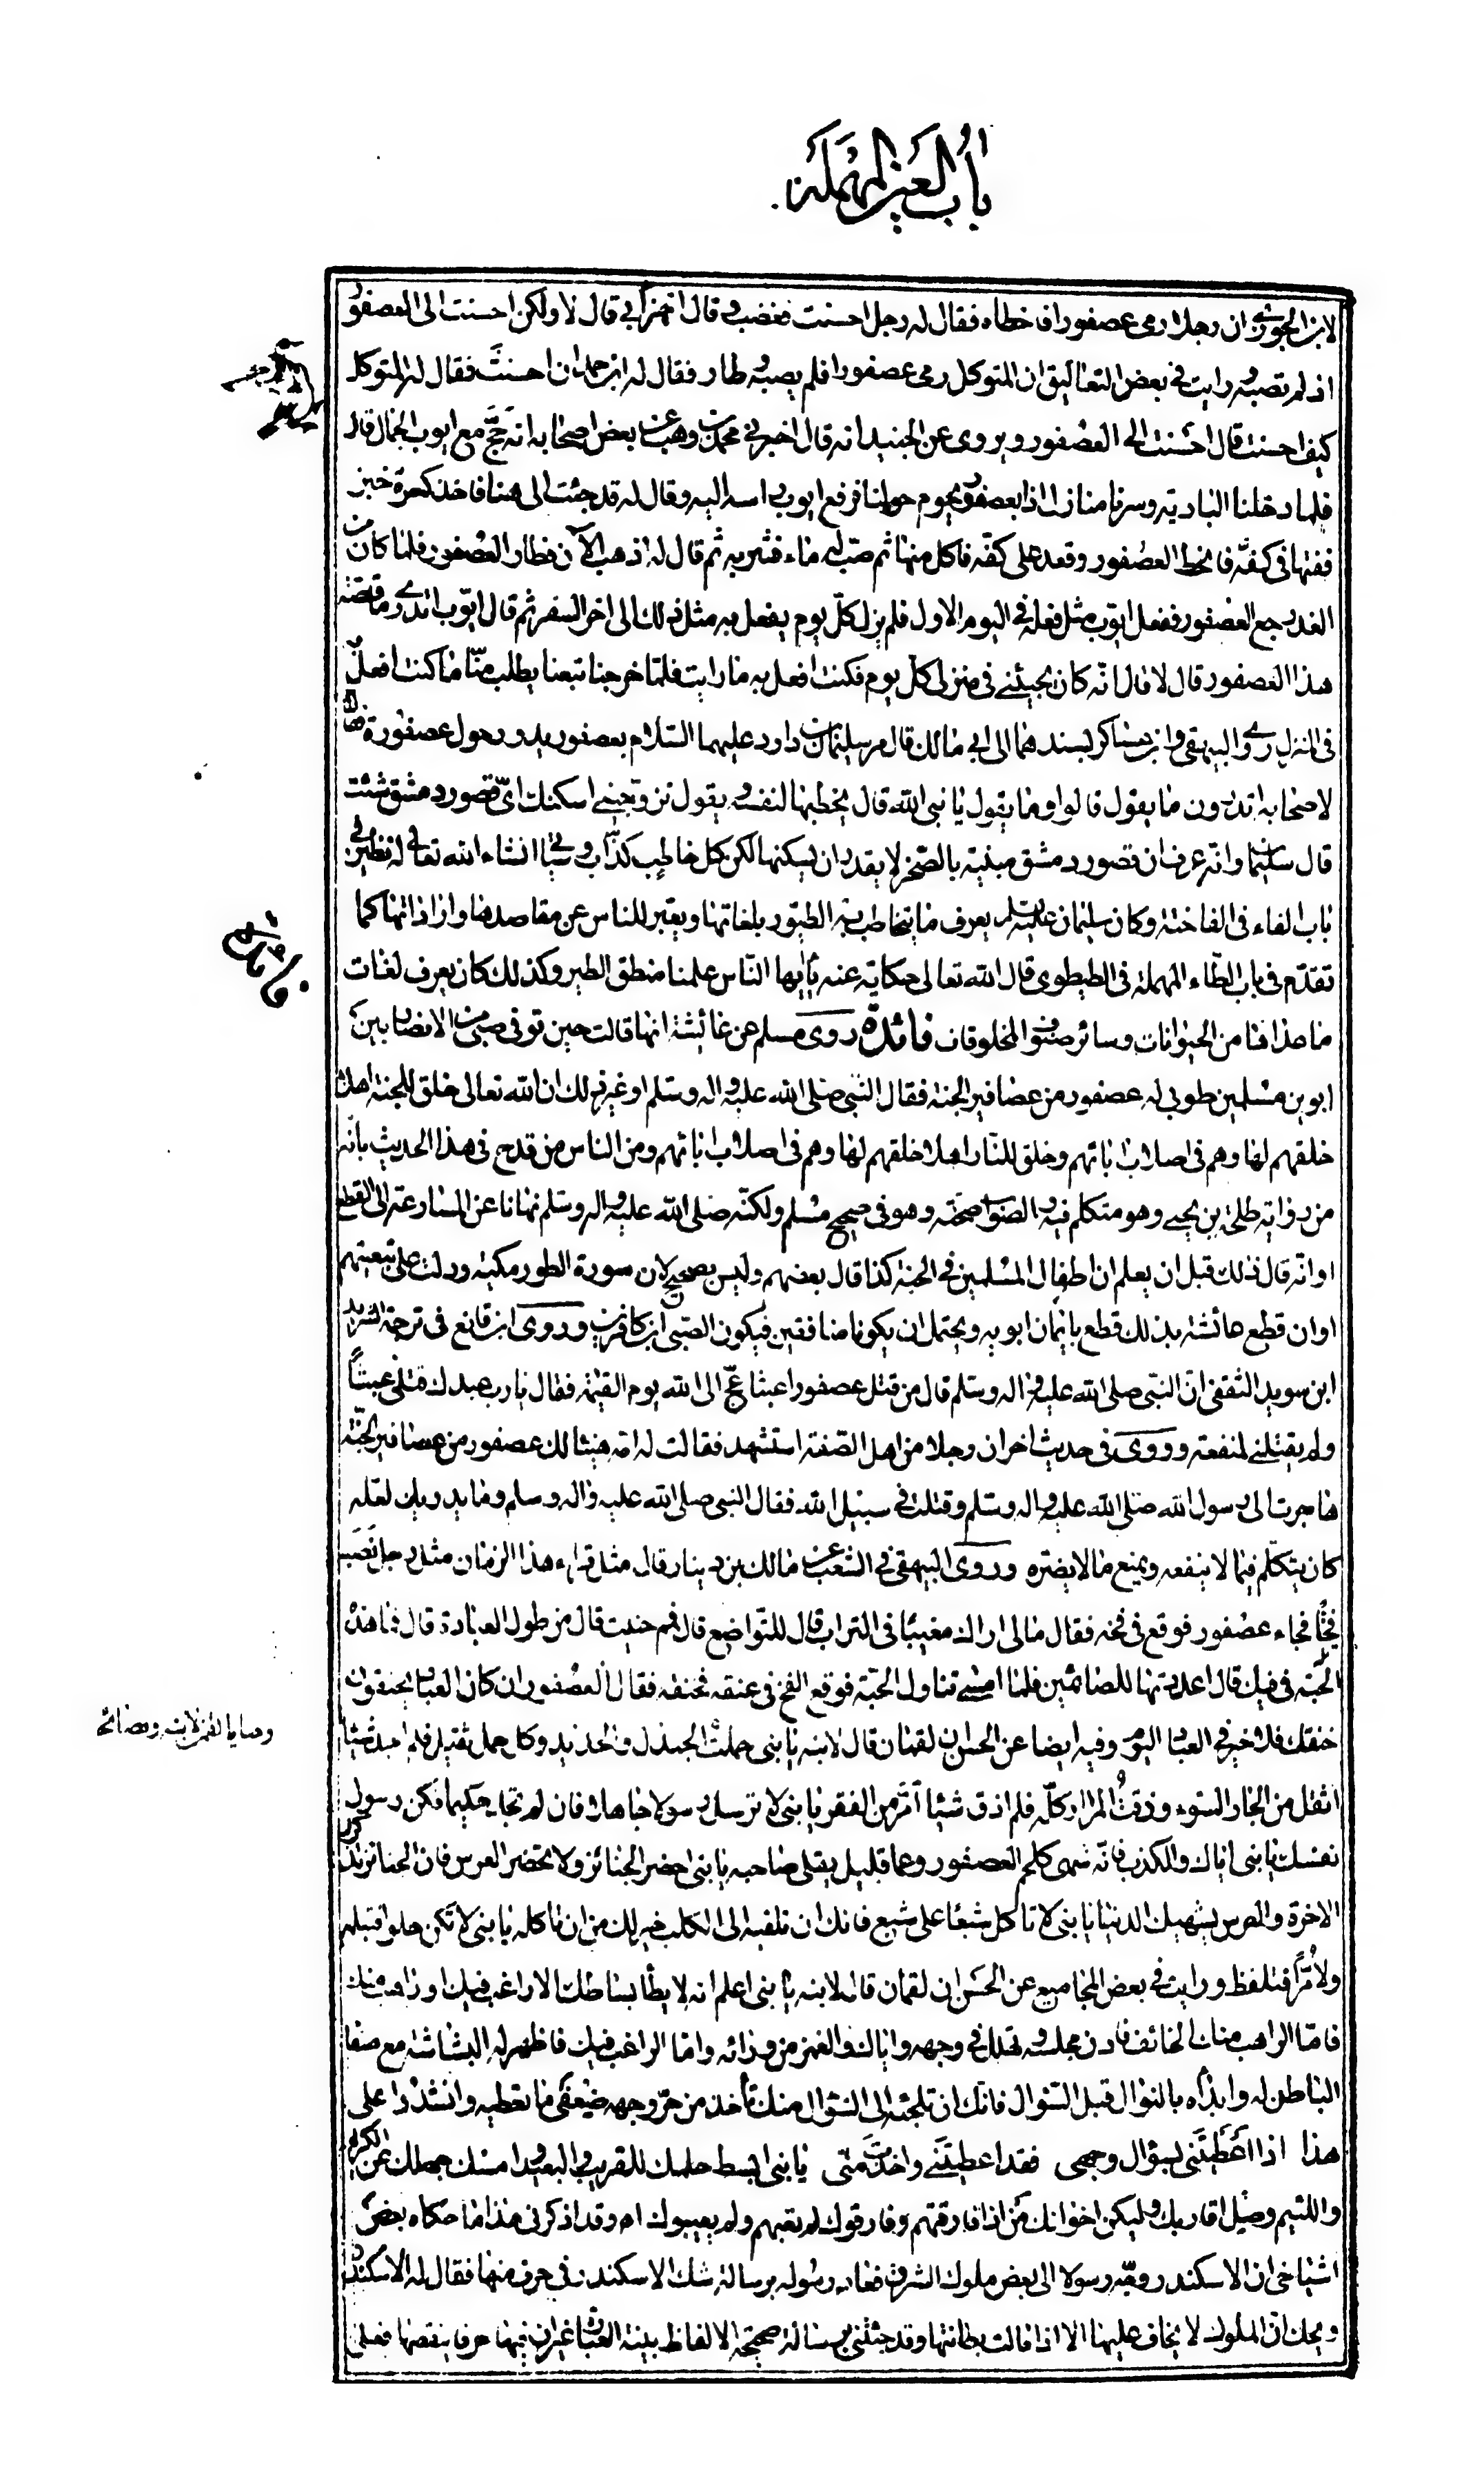 باب العين المهملة
لابن الجوزي ان رجلا رمى عصفورا فاخطاه فقال له رجل احسنت فغضب وقال اتهزأ بي قال لا ولكن احسنت الى العصفور
اذ لم تصبه ورايت في بعض التعاليق ان المتوكل رمى عصفورا فلم يصبه وطار فقال له ابن حمدان احسنت فقال له المتوكل
كيف احسنت قال احسنت الى العصفور ويروى عن الجنيد انه قال اخبرني محمد بن وهب عن بعض اصحابه انه حج مع ايوب الجمال قال
فلما دخلنا البادية وسرنا منازل اذا بعصفور يحوم حولنا فرفع ايوب راسه اليه وقال له قد جئت الى هنا فاخذ كسرة خبز
ففتها في كفه فانحط العصفور وقعد على كفه فاكل منها ثم صب له ماء فشربه ثم قال له اذهب الآن فطار العصفور فلما كان من
الغد رجع العصفور ففعل ايوب مثل فعله في اليوم الاول فلم يزل كل يوم يفعل به مثل ذلك الى اخر السفر ثم قال ايوب اتدري ما قصة
هذا العصفور قال لا قال انه كان يجيئني في منزلي كل يوم فكنت افعل به ما رايت فلما خرجنا تبعنا يطلب منا ما كنت افعل به
في المنزل روى البيهقي وابن عساكر بسندهما الى ابي مالك قال مر سليمان بن داود عليهما السلام بعصفور يدور حول عصفورة فقال
لاصحابه اتدرون ما يقول قالوا وما يقول يا نبي الله قال يخطبها لنفسه ويقول تزوجيني اسكنك اي قصور دمشق شئت
قال سليمان وانه عرف ان قصور دمشق مبنية بالصخر لا يقدر ان يسكنها لكن كل خاطب كذاب وسياتي انشاء الله تعالى له نظير في
باب الفاء في الفاختة وكان سليمان عليه السلم يعرف ما يتخاطب به الطيور بلغاتها ويعبر للناس عن مقاصدها وارادتها كما
تقدم في باب الطاء المهملة في الطيطوى قال الله تعالى حكاية عنه يا ايها الناس علمنا منطق الطير وكذلك كان يعرف لغات
ما عداها من الحيوانات وسائر صنوف المخلوقات فائدة روى مسلم عن عائشة انها قالت حين توفي صبي من الانصار بين
ابوين مسلمين طوبى له عصفور من عصافير الجنة فقال النبي صلى الله عليه واله وسلم او غير ذلك ان الله تعالى خلق للجنة اهلا
خلقهم لها وهم في اصلاب ابائهم وخلق للنار اهلا خلقهم لها وهم في اصلاب ابائهم ومن الناس من قدح في هذا الحديث بانه
من رواية طلحة بن يحيى وهو متكلم فيه والصواب صحته وهو في صحيح مسلم ولكنه صلى الله عليه واله وسلم نهانا عن المسارعة الى القطع
او انه قال ذلك قبل ان يعلم ان اطفال المسلمين في الجنة كذا قال بعضهم وليس بصحيح لان سورة الطور مكية ودلت على تبعيتهم
او ان قطع عائشة بذلك قطع بايمان ابويه ويحتمل ان يكونا منافقين فيكون الصبي ابن كافرين وروى ابن قانع في ترجمة الشريد
ابن سويد الثقفي ان النبي صلى الله عليه واله وسلم قال من قتل عصفورا عبثا عج الى الله يوم القيمة فقال يا رب عبدك قتلني عبثاً
ولم يقتلني لمنفعة وروى في حديث اخر ان رجلا من اهل الصفة استشهد فقالت له امه هنيئا لك عصفور من عصافير الجنة
هاجرت الى رسول الله صلى الله عليه واله وسلم وقتلت في سبيل الله فقال النبي صلى الله عليه واله وسلم وما يدريك لعله
كان يتكلم فيما لا ينفعه ويمنع ما لا يضره وروى البيهقي في الشعب عن مالك بن دينار قال مثل قراء هذا الزمان مثل رجل نصب
فخا فجاء عصفور فوقع في فخه فقال مالي اراك مغيبا في التراب قال للتواضع قال فمم حنيت قال من طول العبادة قال فما هذه
الحبة في فيك قال اعددتها للصائمين فلما امسى تناول الحبة فوقع الفخ في عنقه فخنقه فقال العصفور ان كان العباد يخنقون
خنقك فلا خير في العباد اليوم وفيه ايضا عن الحسن ان لقمان قال لابنه يا بني حملت الجندل والحديد وكل حمل ثقيل فلم اجد شيئا
اثقل من الجار السوء وذقت المرار كله فلم اذق شيئا امر من الفقر يا بني لا ترسل رسولا جاهلا فان لم تجد حكيما فكن رسول
نفسك يا بني اياك والكذب فانه شهي كلحم العصفور وعما قليل يقلى صاحبه يا بني احضر الجنائز ولا تحضر العرس فان الجنائز تذكرك
الاخرة والعرس يشهيك الدنيا يا بني لا تاكل شبعا على شبع فانك ان تلقيه الى الكلب خير لك من ان تاكله يا بني لا تكن حلوا فتبلع
ولا مراً فتلفظ ورايت في بعض المجاميع عن الحسن ان لقمان قال لابنه يا بني اعلم انه لا يطأ بساطك الا راغب فيك او راهب منك
فاما الراهب منك الخائف فادن مجلسه وتهلل في وجهه واياك والغمز من ورائه واما الراغب فيك فاظهر له البشاشة مع صفا
الباطن له وابدأه بالنوال قبل السؤال فانك ان تلجئه الى السؤال منك تأخذ من حر وجهه ضعفي ما تعطيه وانشدوا على
هذا اذا اعطيتني بسؤال وجهي فقد اعطيتني واخذت مني يا بني ابسط حلمك للقريب والبعيد وامسك جهلك عن الكريم
واللئيم وصل اقاربك وليكن اخوانك من اذا فارقتهم وفارقوك لم تعبهم ولم يعيبوك اه وقد اذكرني هذا ما حكاه بعض
اشياخي ان الاسكندر وجه رسولا الى بعض ملوك الشرق فعاد رسوله برسالة شك الاسكندر في حرف منها فقال له الاسكندر
ويحك ان الملوك لا يخاف عليها الا اذا مالت بطانتها وقد جئتني برسالة صحيحة الالفاظ بينة العبارة غير ان فيها حرفا ينقضها فعلى
وصايا لقمن لابنه ونصائحه